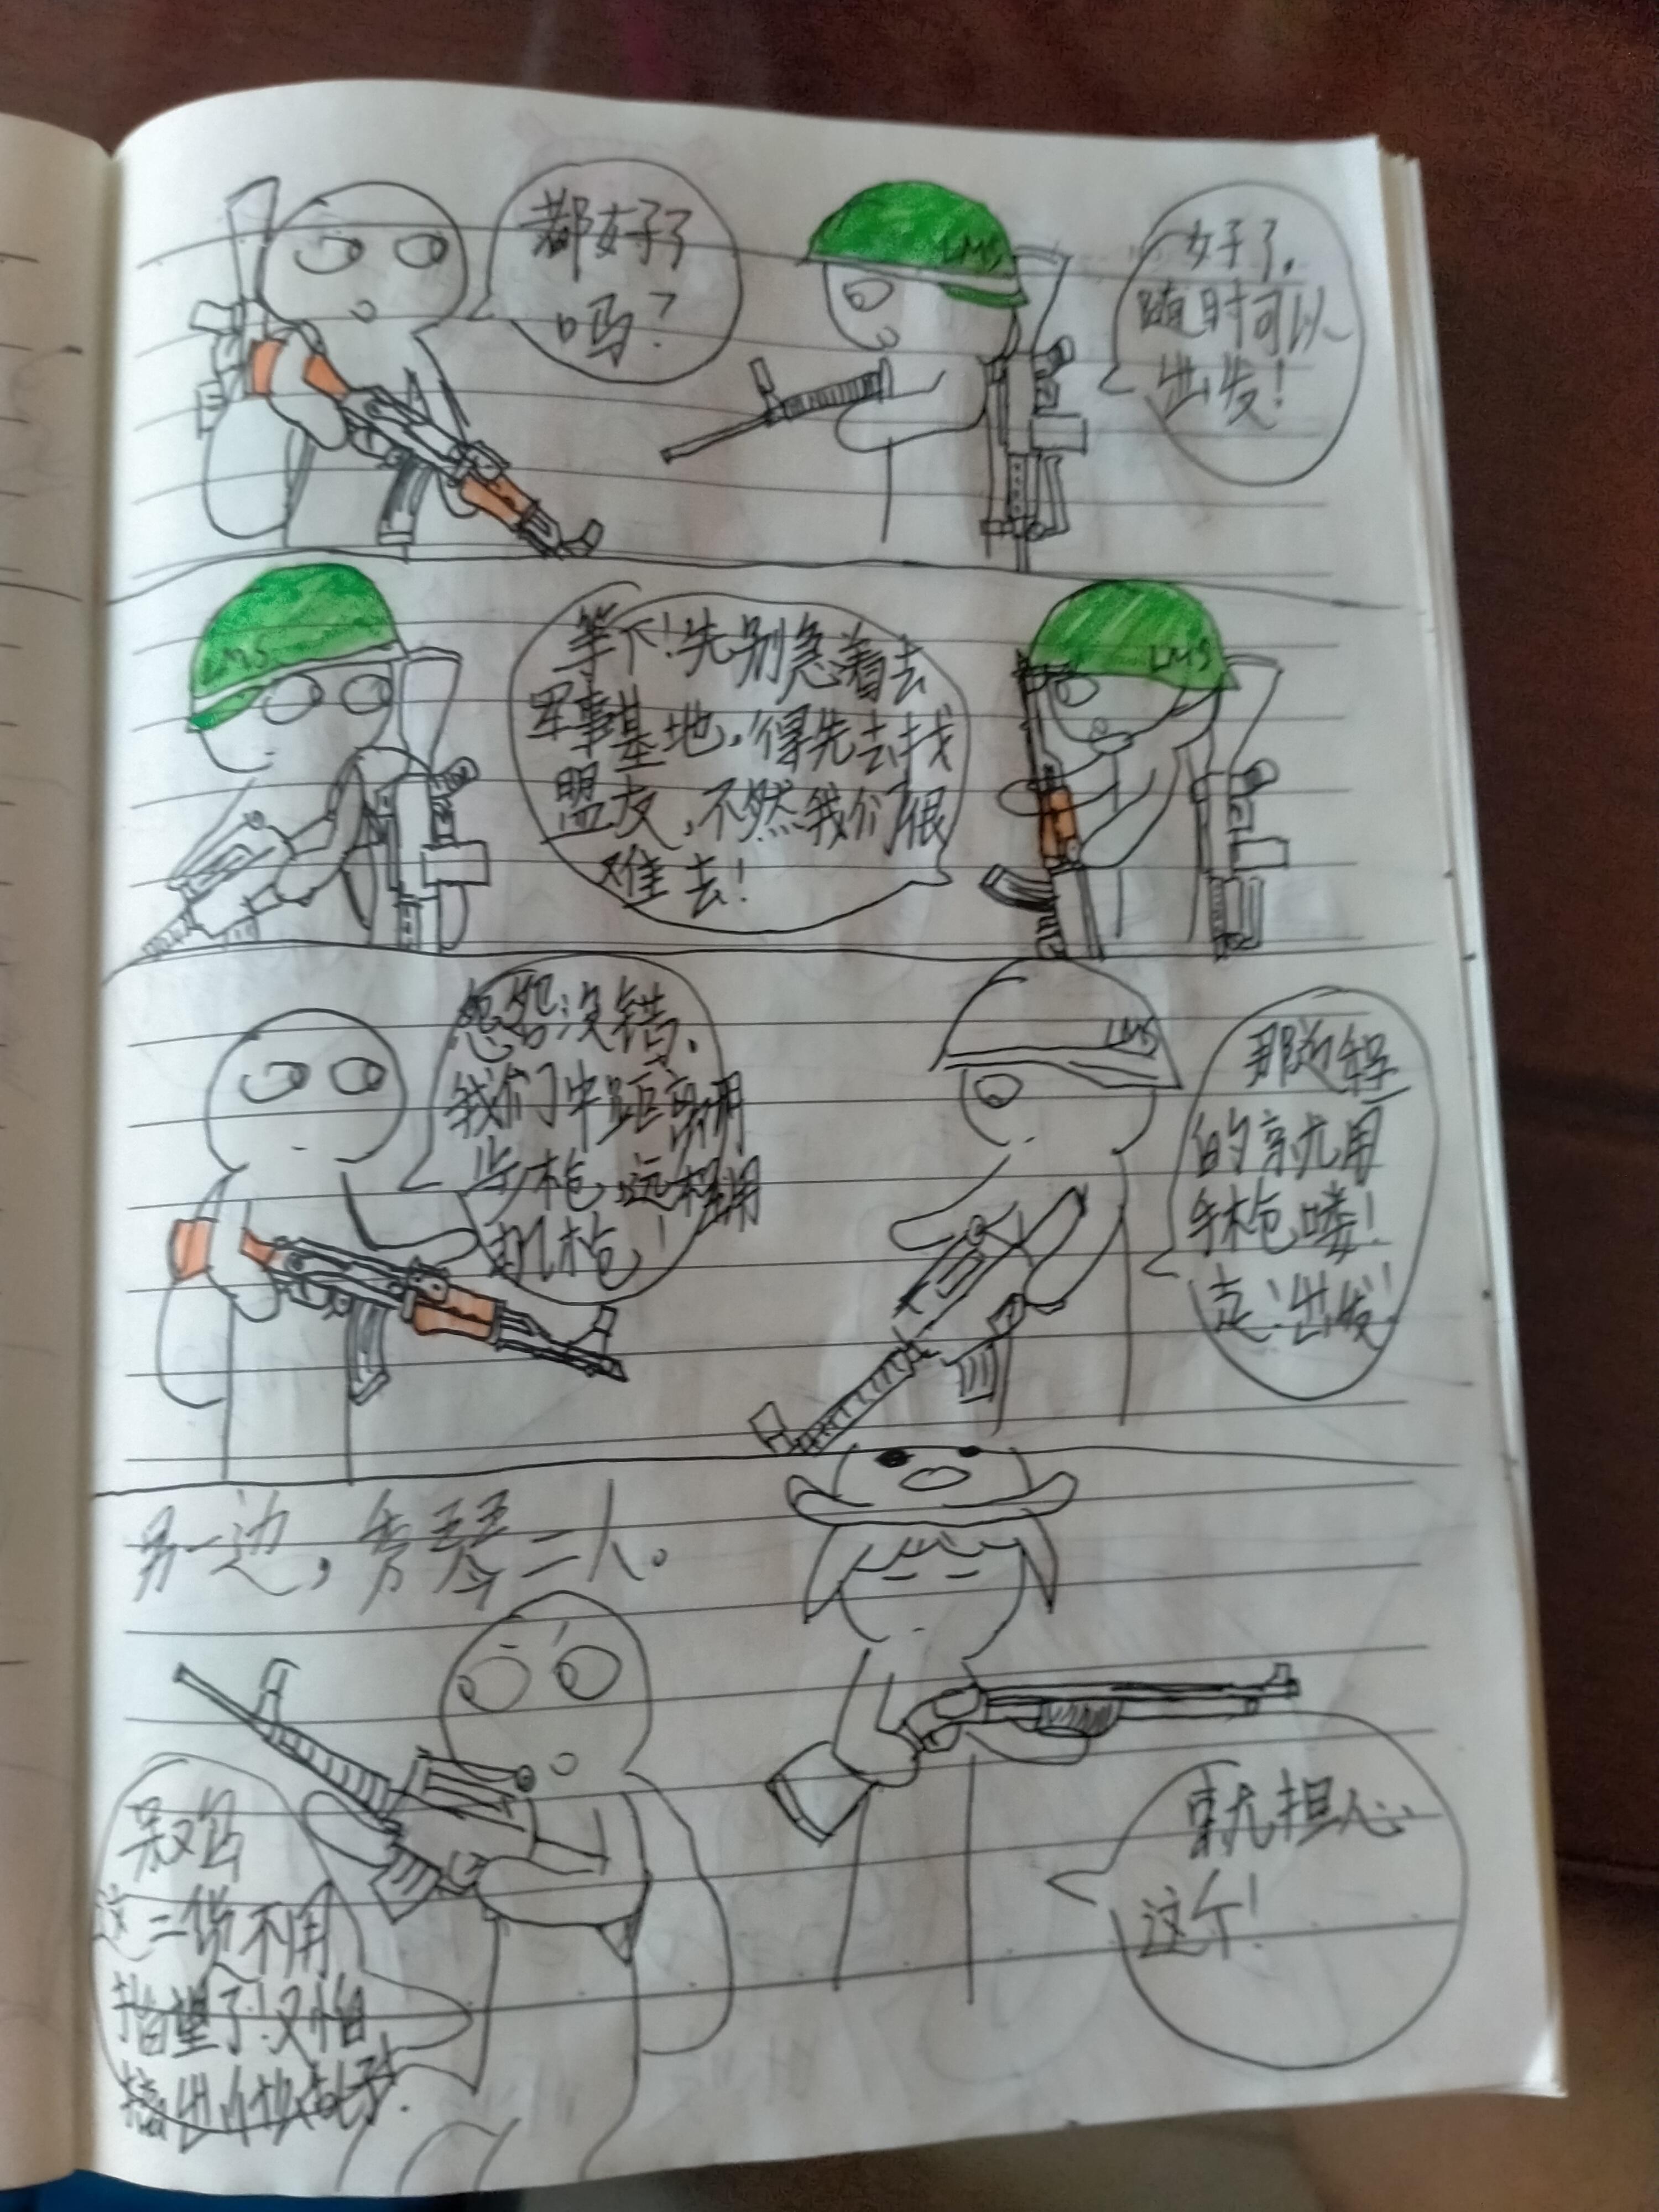 都好了
吗？
LMS
好了，
随时可以
出发！
LMS
等下！先别急着去
军事基地，得先去找
盟友，不然我们很
难去！
LMS
没错，
我们中距离用
步枪，远程用
机枪！
LMS
那近程
的就用
手枪喽！
走！出发！
另一边，秀琴二人。
这二货不用
指望了！又怕
搞出什么乱子.
就担心
这个！